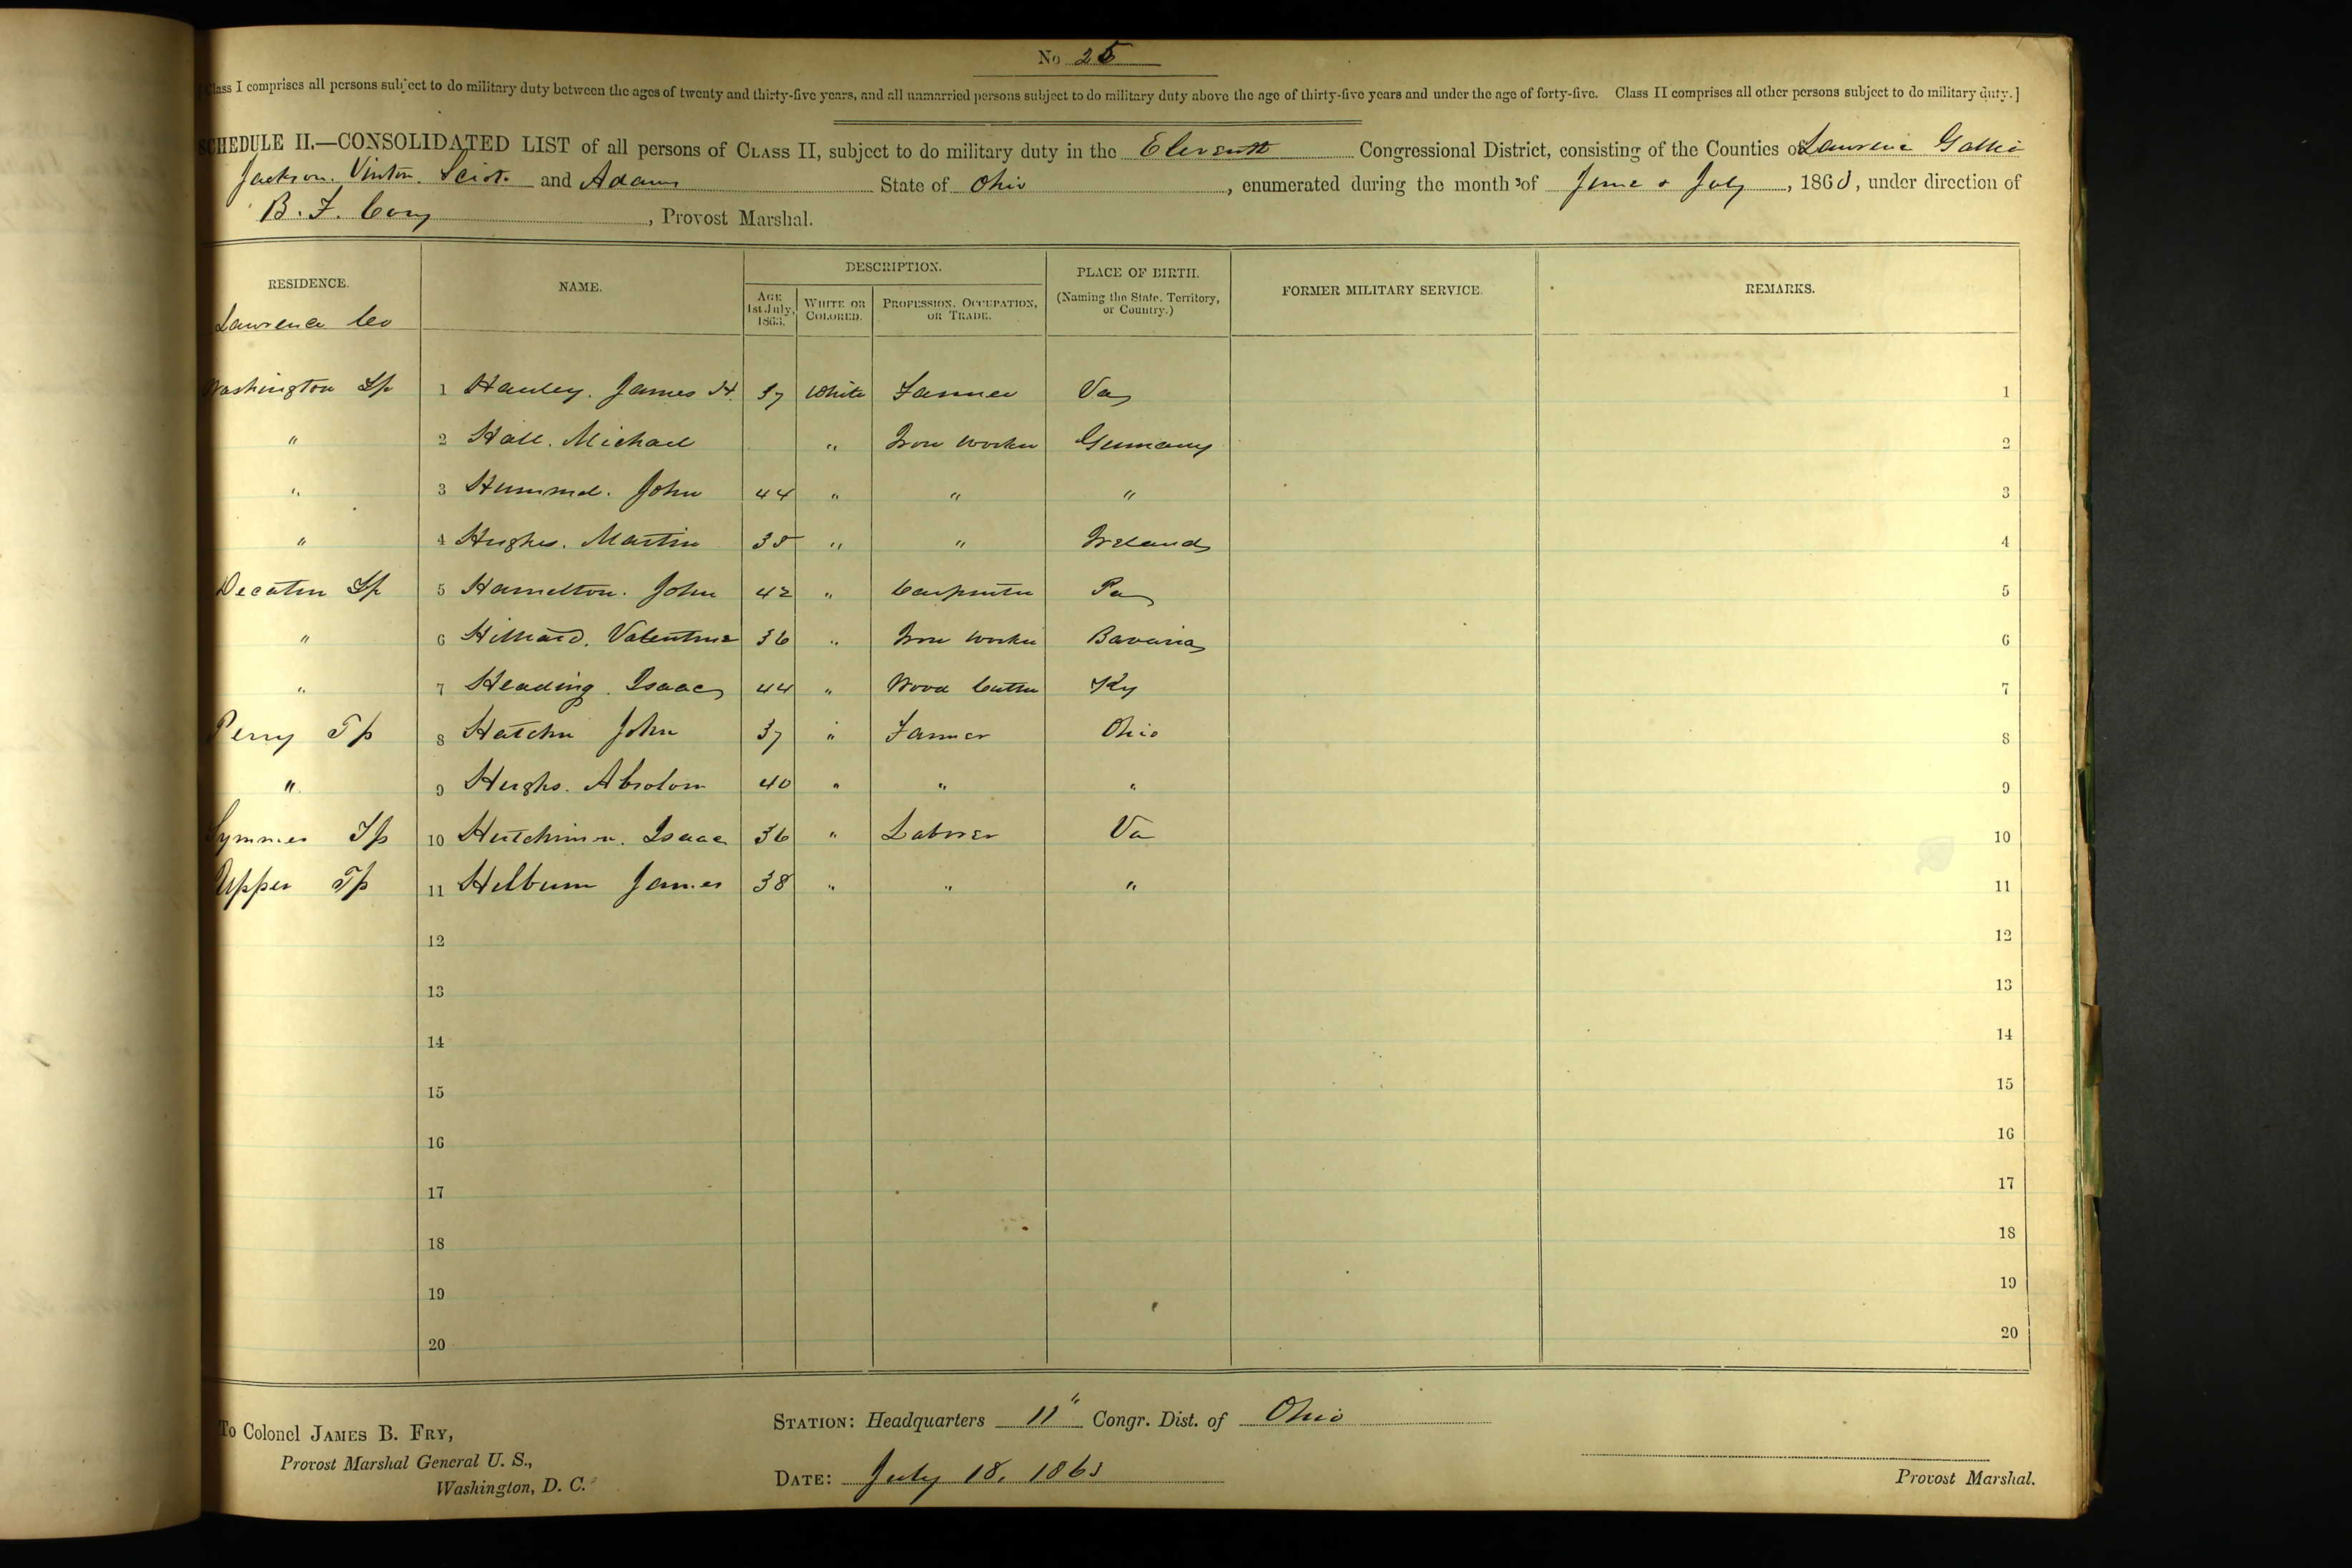 No 25
[Class I comprises all persons subject to do military duty between the ages of twenty and thirty-five years, and all unmarried persons subject to do military duty above the age of thirty-five years and under the age of forty-five. Class II comprises all other persons subject to do military duty.]
SCHEDULE II.—CONSOLIDATED LIST of all persons of CLASS II, subject to do military duty in the Eleventh Congressional District, consisting of the Counties of Lawrence Gallia
Jackson. Vinton. Scioto and Adams State of Ohio, enumerated during the month of June & July, 1863, under direction of
B. F. Cory, Provost Marshal.
RESIDENCE. NAME. DESCRIPTION. PLACE OF BIRTH. (Naming the State, Territory, or Country.) FORMER MILITARY SERVICE. REMARKS.
AGE 1st July, 1863. WHITE OR COLORED. PROFESSION, OCCUPATION, OR TRADE.
Lawrence Co
Washington Tp 1 Hanley. James H. 37 White Farmer Va 1
" 2 Hall. Michael " Iron Worker Germany 2
" 3 Hummel. John 44 " " " 3
" 4 Hughes. Martin 35 " " Ireland 4
Decatur Tp 5 Hamelton. John 42 " Carpenter Pa 5
" 6 Hilliard. Valentine 36 " Iron Worker Bavaria 6
" 7 Heading. Isaac 44 " Wood Cutter Ky 7
Perry Tp 8 Hatcher John 37 " Farmer Ohio 8
" 9 Hughs. Absolom 40 " " " 9
Symmes Tp 10 Hutchinson. Isaac 36 " Laborer Va 10
Upper Tp 11 Helburn James 38 " " " 11
12 12
13 13
14 14
15 15
16 16
17 17
18 18
19 19
20 20
To Colonel JAMES B. FRY,
Provost Marshal General U. S.,
Washington, D. C.
STATION: Headquarters 11" Congr. Dist. of Ohio
DATE: July 18, 1863
Provost Marshal.